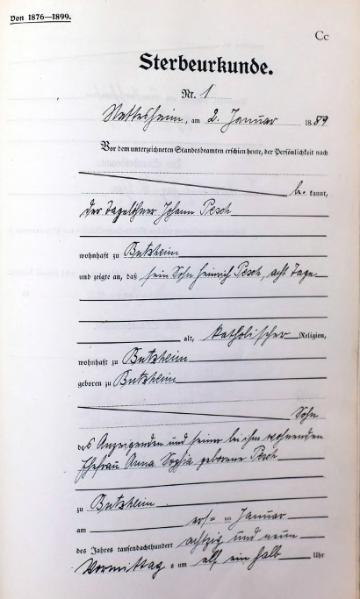 Von 1876—1899.
Cc
Sterbeurkunde.
Nr. 1
Nettesheim, am 2. Januar 1889
Vor dem unterzeichneten Standesbeamten erschien heute, der Persönlichkeit nach
be kannt,
der Tagelöhner Johann Pesch
wohnhaft zu Butzheim
und zeigte an, daß sein Sohn Heinrich Pesch, acht Tage
alt, katholischer Religion,
wohnhaft zu Butzheim
geboren zu Butzheim
Sohn
des Anzeigenden und seiner bei ihm wohnenden
Ehefrau Anna Sophia geborene Pesch
zu Butzheim
am ersten Januar
des Jahres tausendachthundert achtzig und neun
Vormittags um elf ein halb Uhr